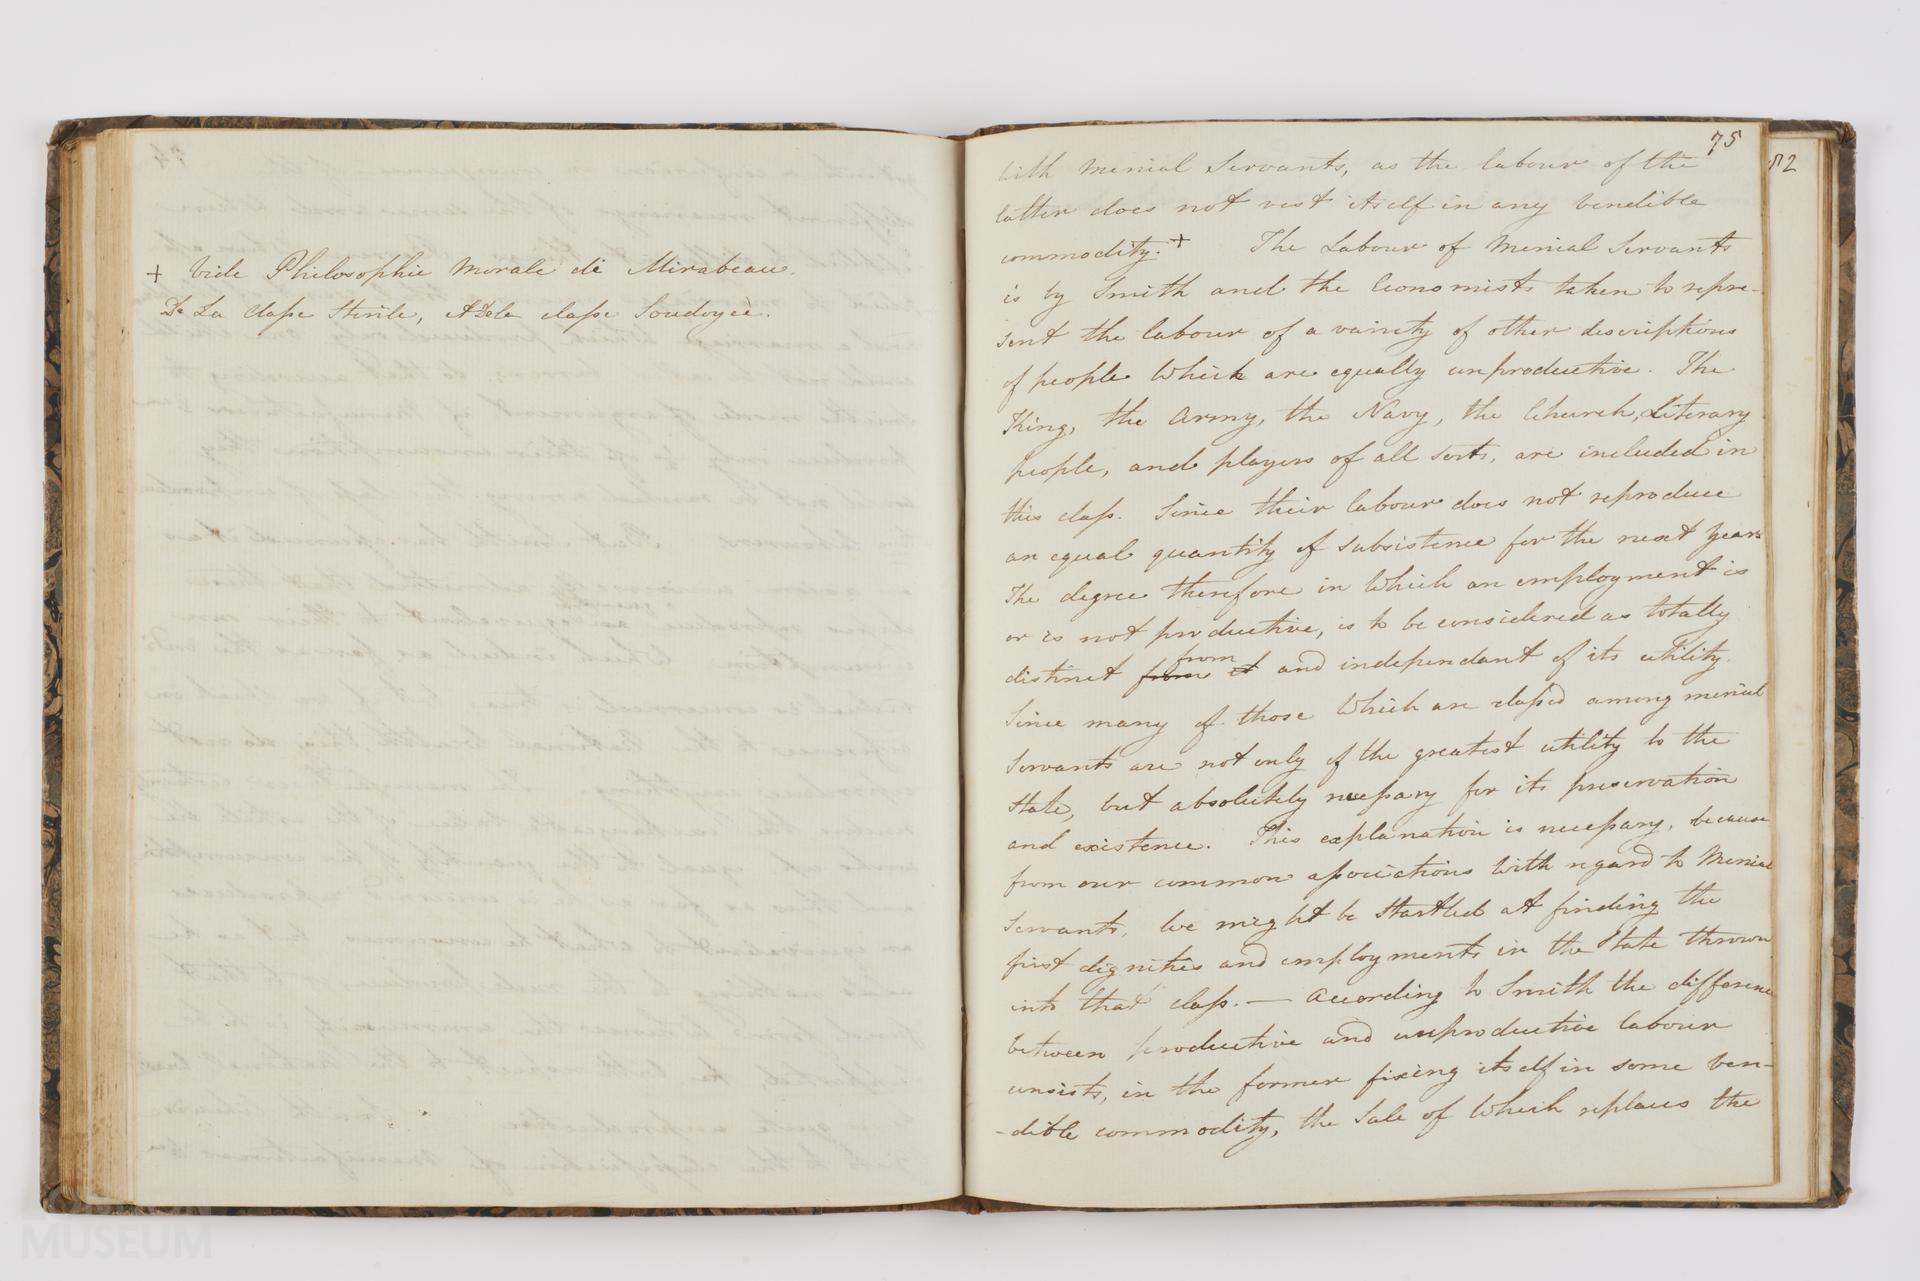 + Vide Philosophie Morale de Mirabeau.
De La classe Sterile, et De la classe Soudoyèe.
75
52
with Menial Servants, as the labour of the
latter does not vest itself in any vendible
commodity.+ The Labour of Menial Servants
is by Smith and the Economists taken to repre-
sent the labour of a variety of other descriptions
of people which are equally unproductive. The
King, the Army, the Navy, the Church, Literary
people, and players of all sorts, are included in
this class. Since their labour does not reproduce
an equal quantity of subsistence for the next year.
The degree therefore in which an employment is
or is not productive, is to be considered as totally
from
distinct from it and independant of its utility.
Since many of those which are class'd among menial
Servants are not only of the greatest utility to the
State, but absolutely necessary for its preservation
and existence. This explanation is necessary, because
from our common associations with regard to Menial
Servants, we might be startled at finding the
first dignities and employments in the State thrown
into that class. — According to Smith the difference
between productive and unproductive labour
consists, in the former fixing itself in some ven-
-dible commodity, the Sale of which replaces the
MUSEUM